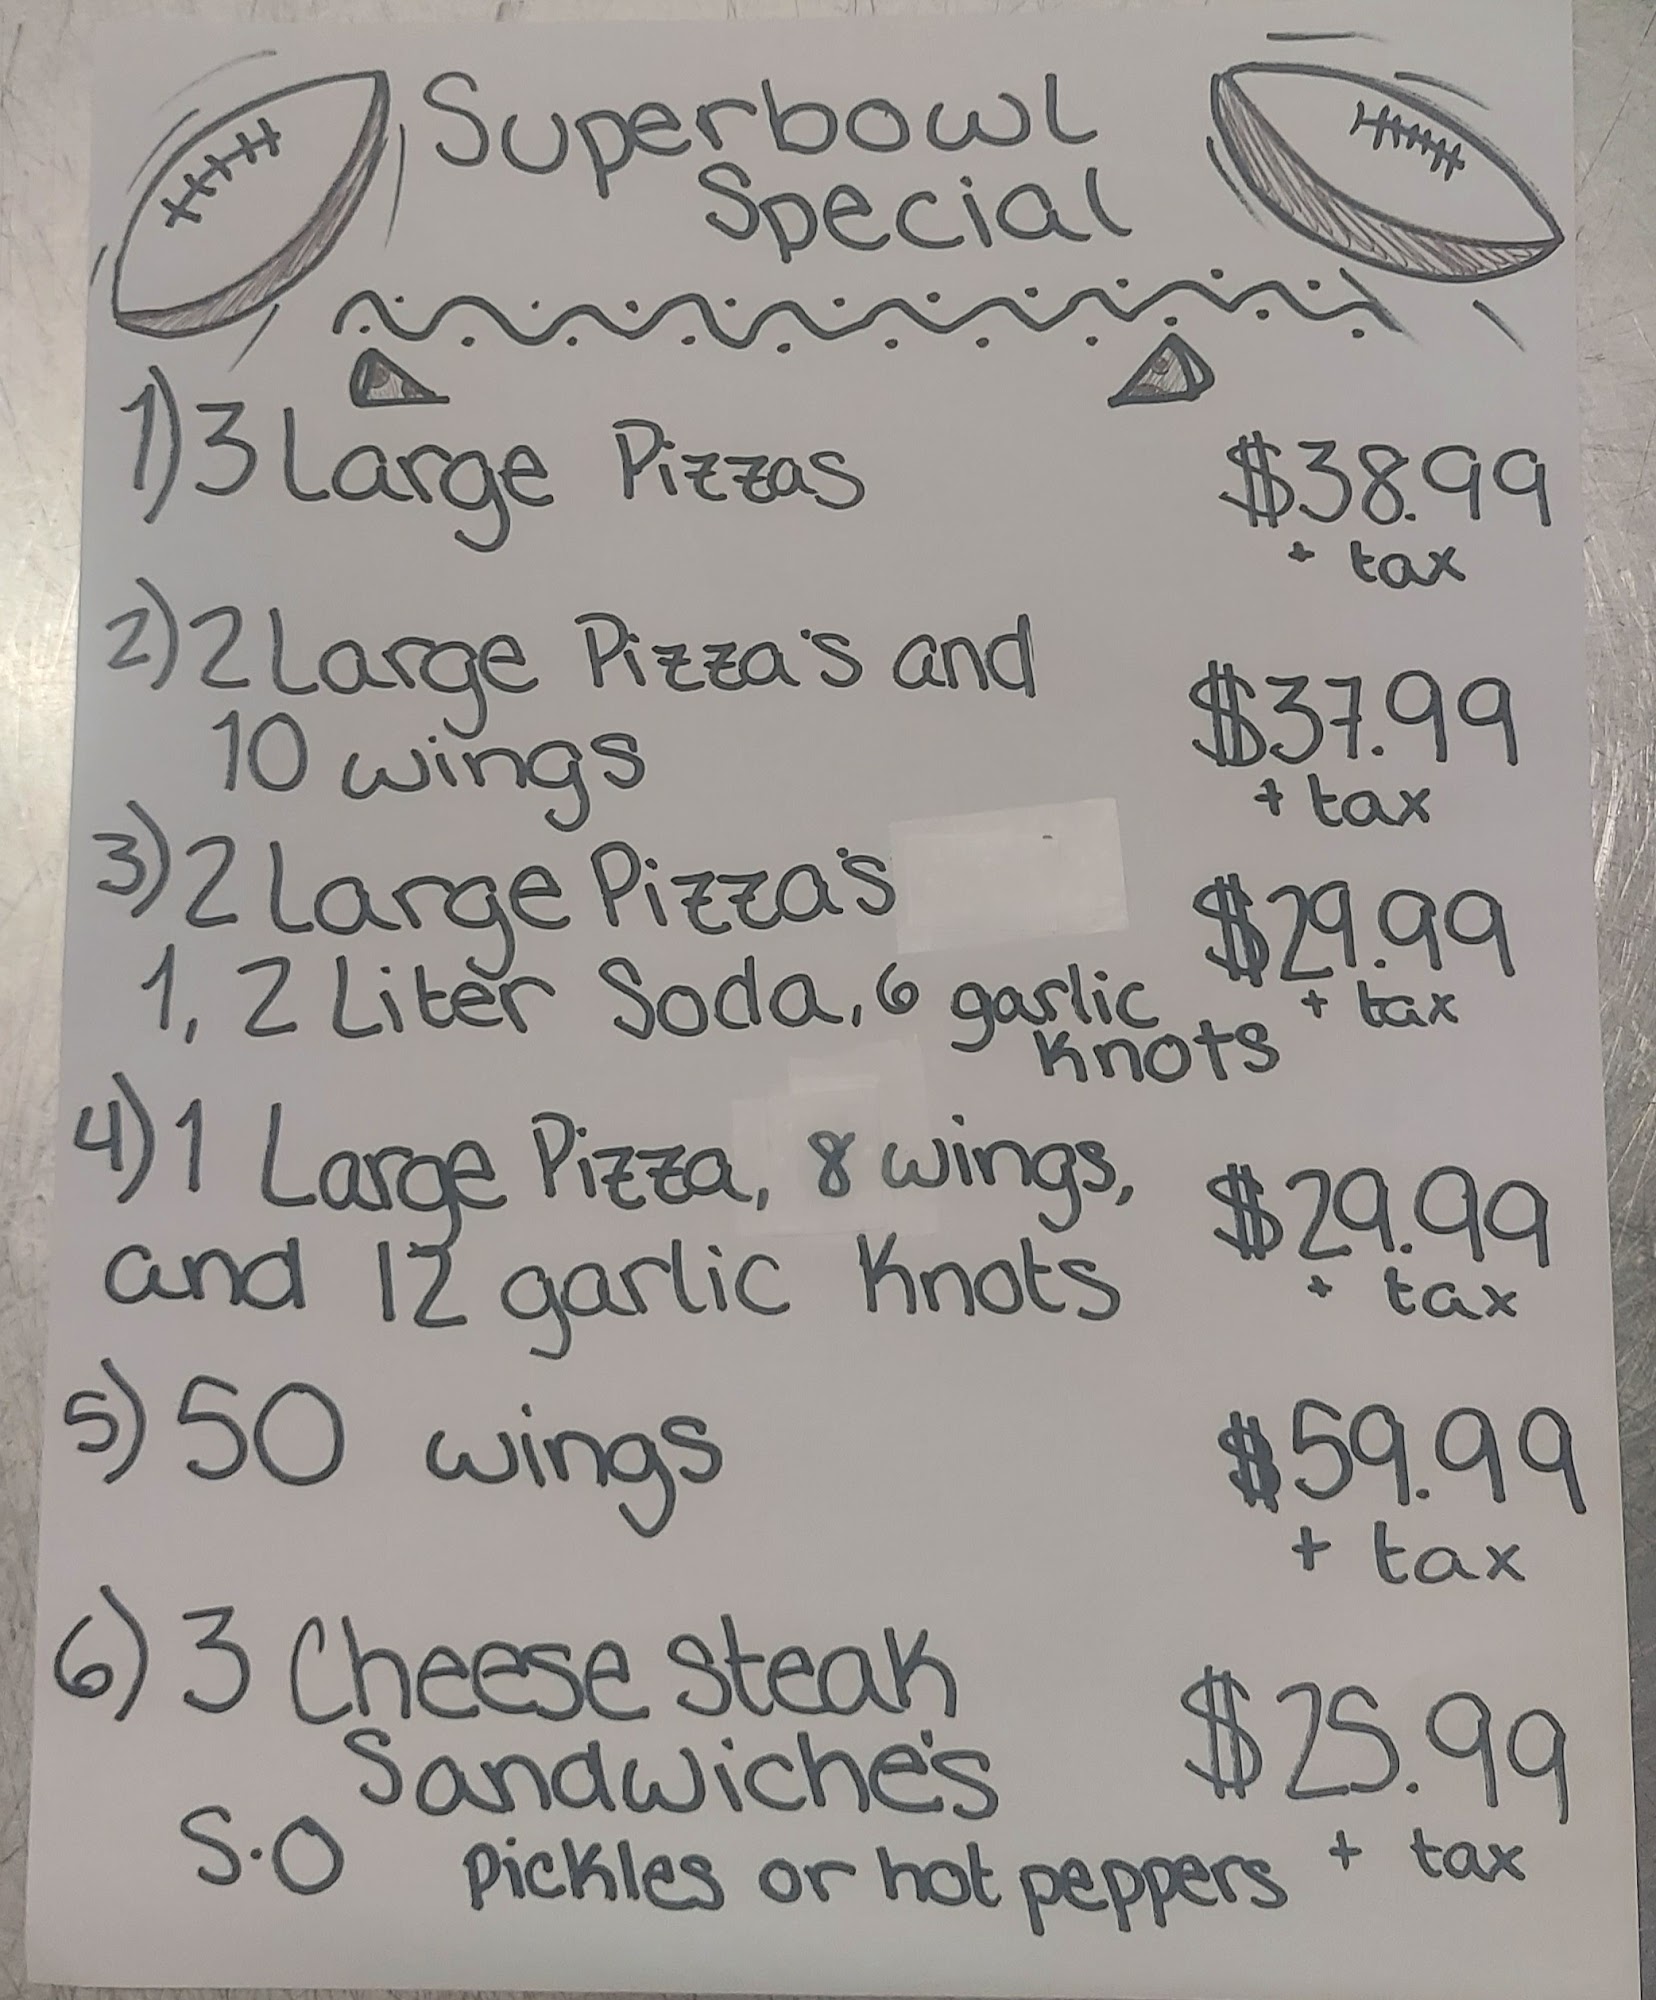 Superbowl
Special
1) 3 Large Pizzas $38.99
+ tax
2) 2 Large Pizza's and
10 wings $37.99
+ tax
3) 2 Large Pizza's $29.99
1, 2 Liter Soda, 6 garlic + tax
Knots
4) 1 Large Pizza, 8 wings, $29.99
and 12 garlic Knots + tax
5) 50 wings $59.99
+ tax
6) 3 Cheese Steak
Sandwiche's $25.99
S.O Pickles or hot peppers + tax